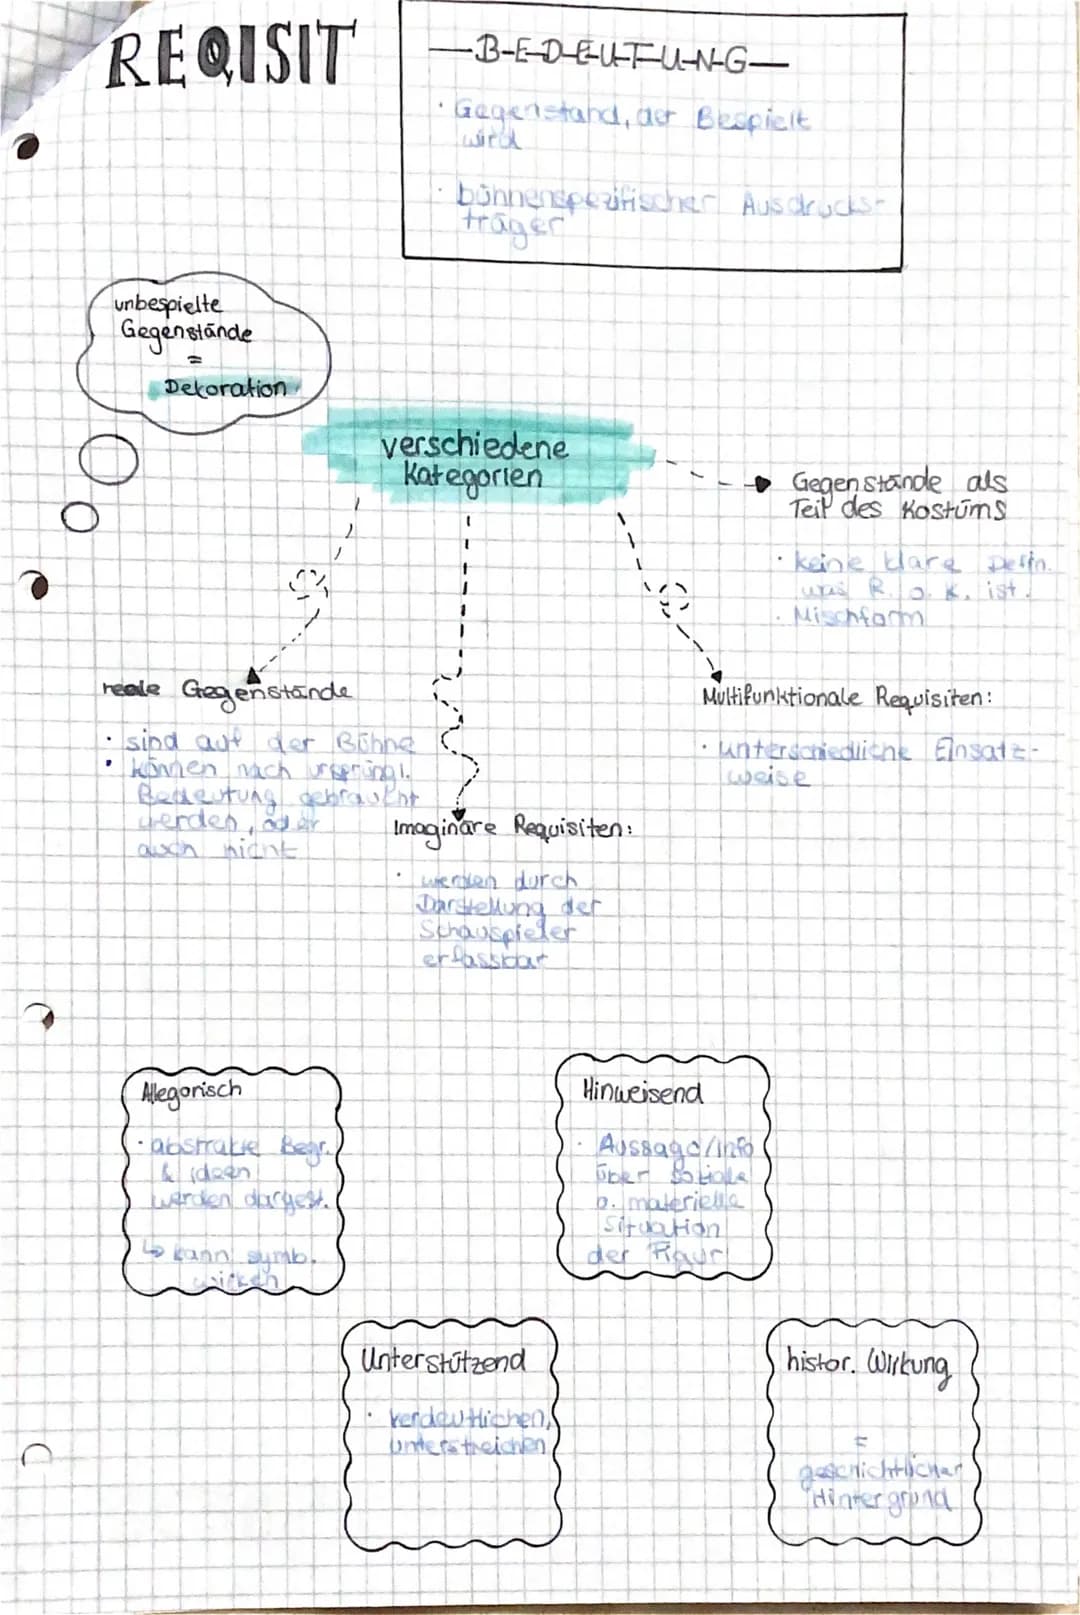 REQISIT
B-E-D-E-U-T-U-N-G
· Gegenstand, der Bespielt
wird
· bühnenspezifischer Ausdrucks-
träger
unbespielte
Gegenstände
=
Dekoration
verschiedene
Kategorien
Gegenstände als
Teil des Kostüms
· keine klare Defin.
was R. o. K. ist.
· Mischform
reale Gegenstände
· sind auf der Bühne
· können nach ursprüngl.
Bedeutung gebraucht
werden, oder
auch nicht
Multifunktionale Requisiten:
· unterschiedliche Einsatz-
weise
Imaginäre Requisiten:
· werden durch
Darstellung der
Schauspieler
erfassbar
Allegorisch
· abstrakte Begr.
& ideen
werden dargest.
↳ kann symb.
wirken
Hinweisend
· Aussage/Info
über soziale
o. materielle
Situation
der Figur
Unterstützend
· verdeutlichen,
unterstreichen
histor. Wirkung
=
geschichtlicher
Hintergrund